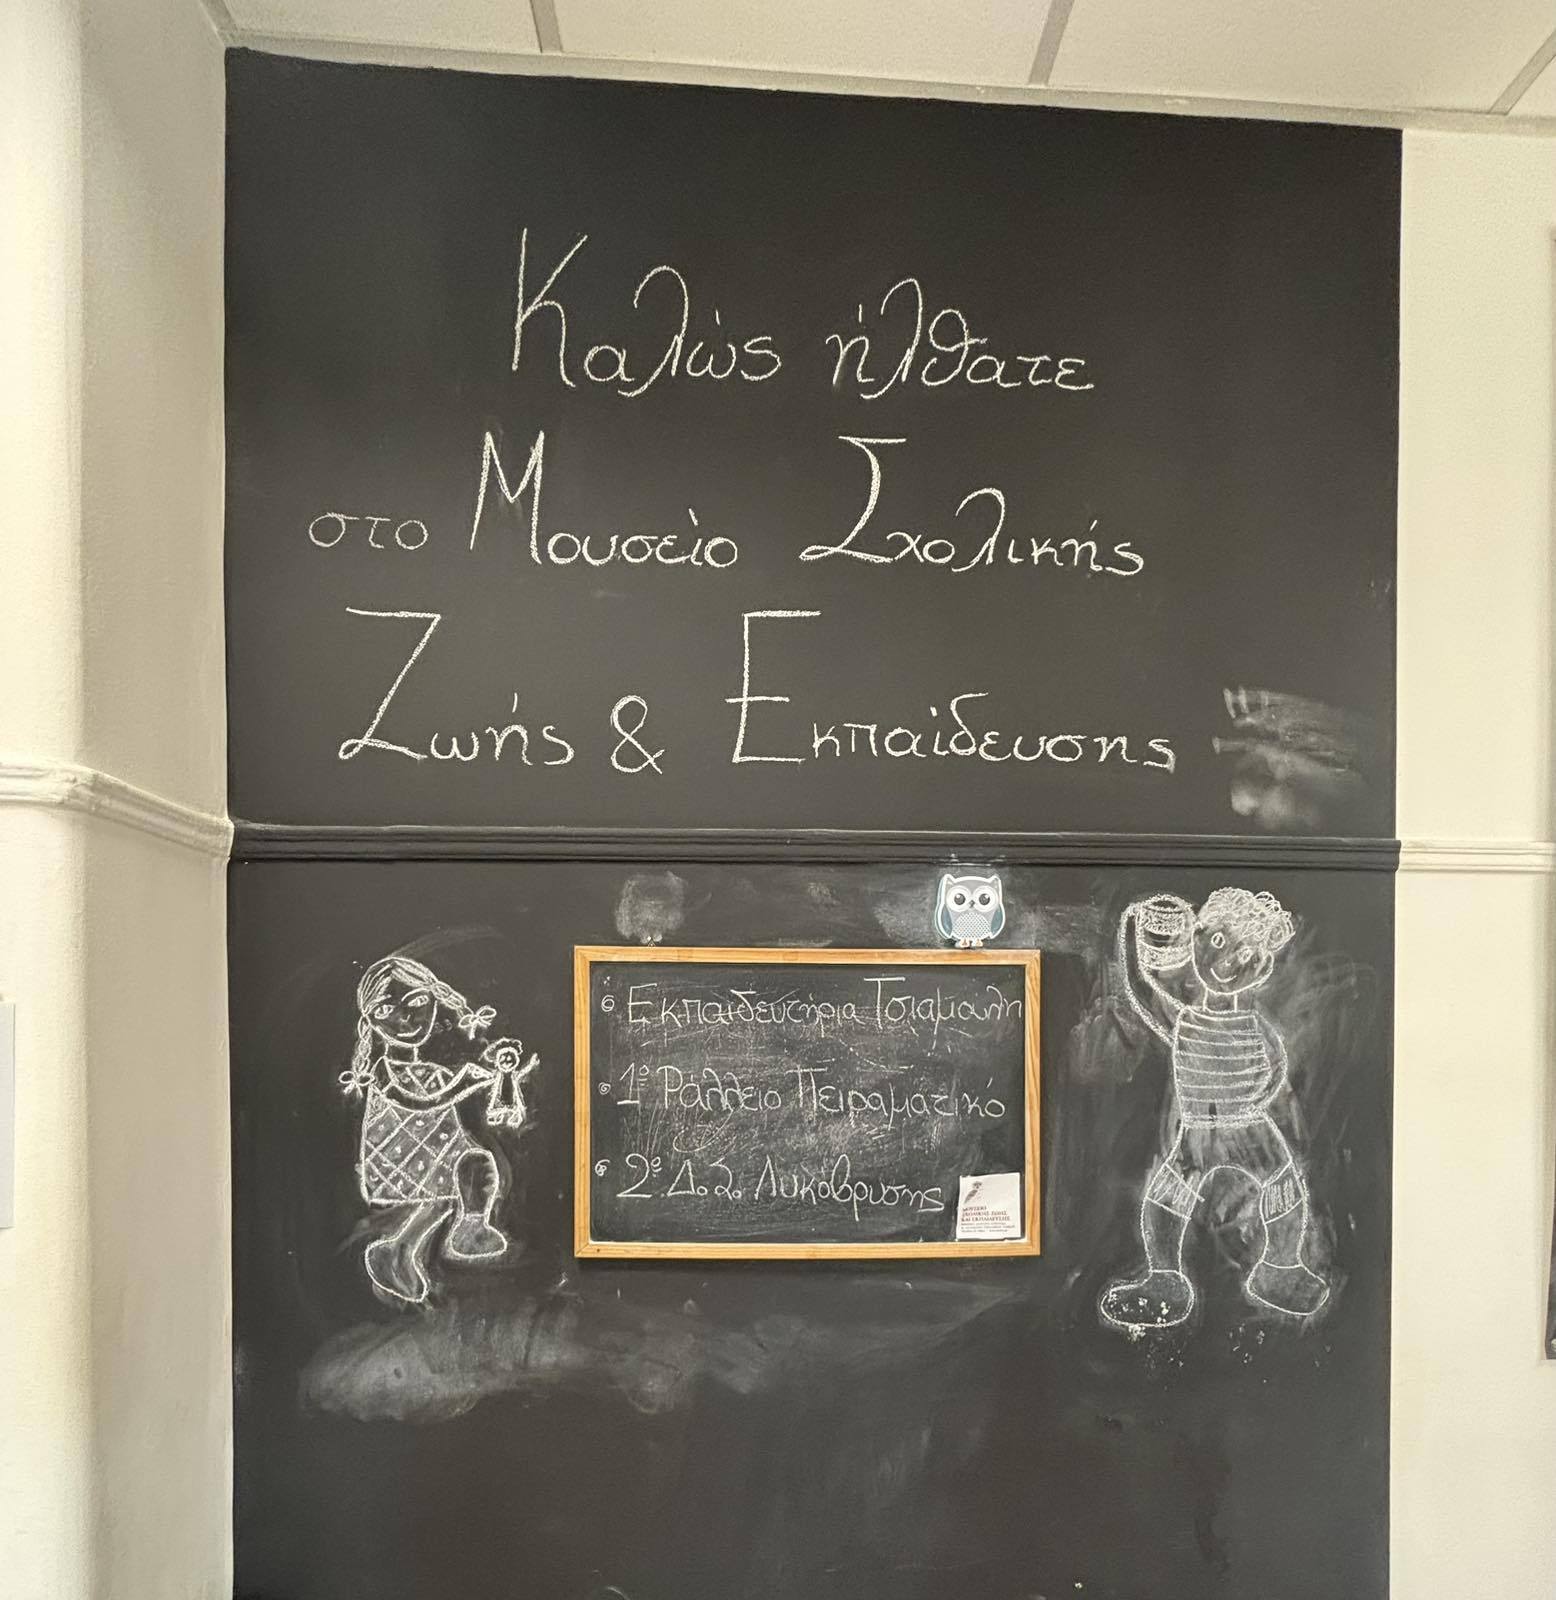 Καλώς ήλθατε
στο Μουσείο Σχολικής
Ζωής & Εκπαίδευσης
Εκπαιδευτήρια Τσιαμούλη
1ο Ράλλειο Πειραματικό
2ο Δ. Σ. Λυκόβρυσης
ΜΟΥΣΕΙΟ
ΣΧΟΛΙΚΗΣ ΖΩΗΣ
ΚΑΙ ΕΚΠΑΙΔΕΥΣΗΣ